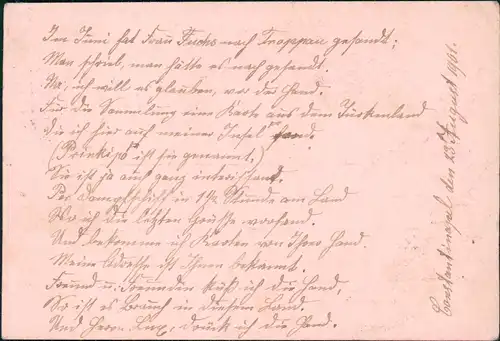 Im Juni hat Frau Fuchs nach Troppau gesandt;
Man schrieb, man hätte es nach gesandt.
Na, ich will es glauben, vor der Hand.
Für die Sammlung eine Karte aus dem Türkenland
Die ich hier auf meiner Insel fand.
("Prinkipo" ist sie genannt,)
Sie ist ja auch ganz interessant.
Per Dampfschiff in 1½ Stunde am Land
Wo ich die letzten Grüße vorfand.
Und bekomme ich Karten von Ihrer Hand.
Meine Adresse ist Ihnen bekannt.
Freund u. Freundin küß ich die Hand,
So ist es Brauch in diesem Land.
Und Herrn Lux, drück ich die Hand.
Constantinopel den 23 August 1901.